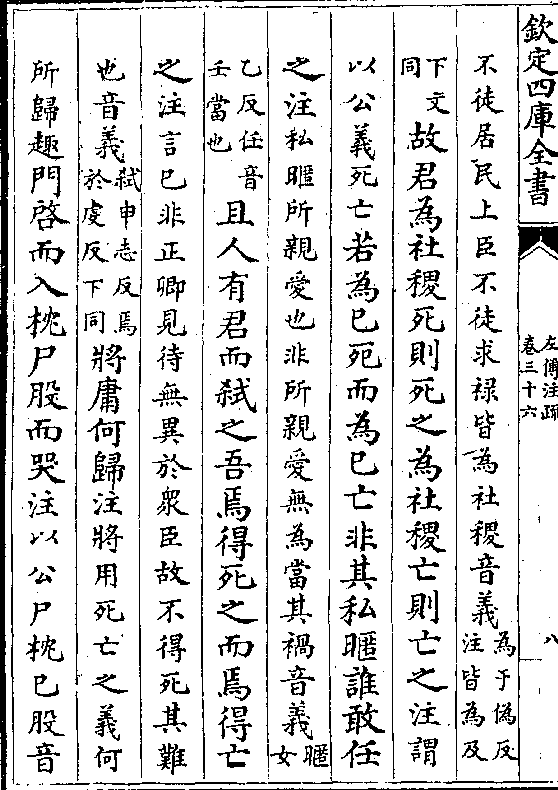 欽定四庫全書
左傳注疏
卷三十六
八
不徒居民上臣不徒求祿皆為社稷音義為于偽反注皆為及
下文同故君為社稷死則死之為社稷亡則亡之注謂
以公義死亡若為已死而為已亡非其私暱誰敢任
之注私暱所親愛也非所親愛無為當其禍音義暱女
乙反任音壬當也且人有君而弑之吾焉得死之而焉得亡
之注言已非正卿見待無異於衆臣故不得死其難
也音義弑申志反焉於虔反下同將庸何歸注將用死亡之義何
所歸趣門啓而入枕尸股而哭注以公尸枕已股音